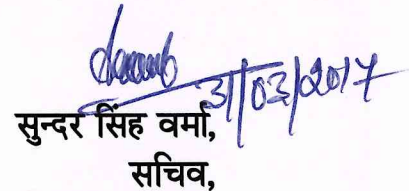 31/03/2017
सुन्दर सिंह वर्मा,
सचिव,